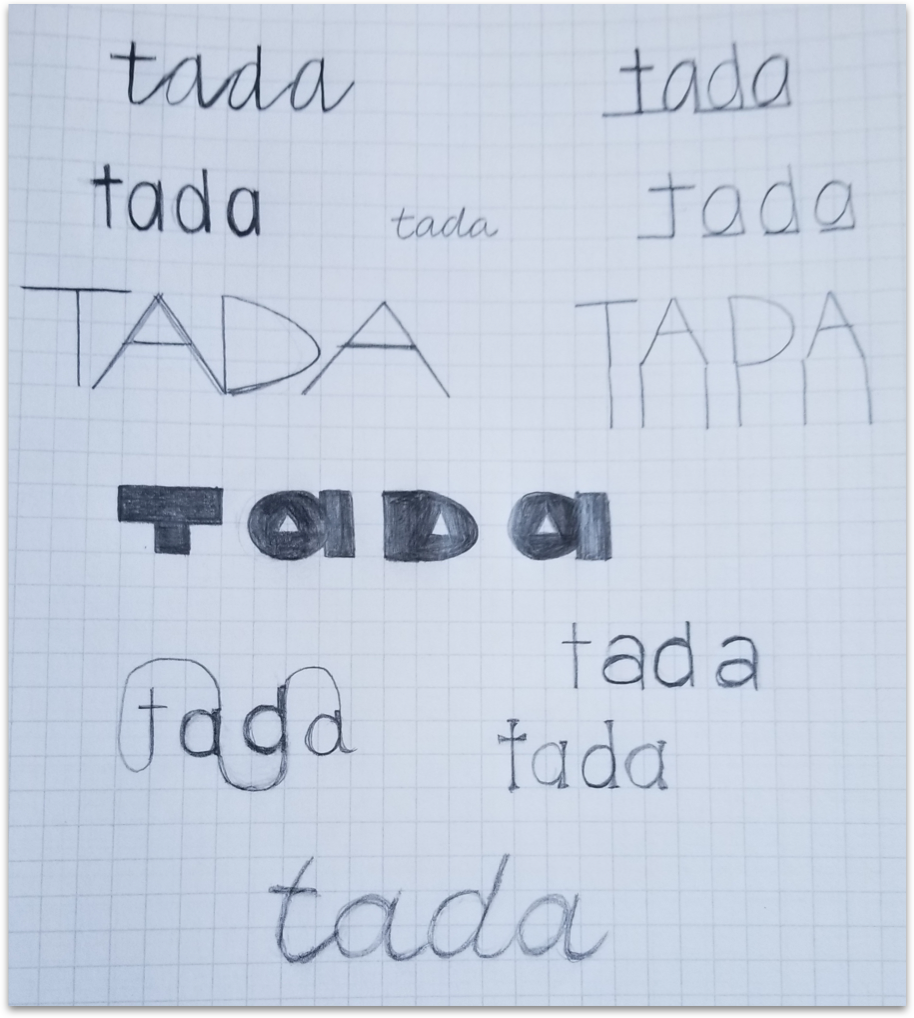 tada tada
tada tada tada
TADA TADA
TaDa
tada tada
tada
tada